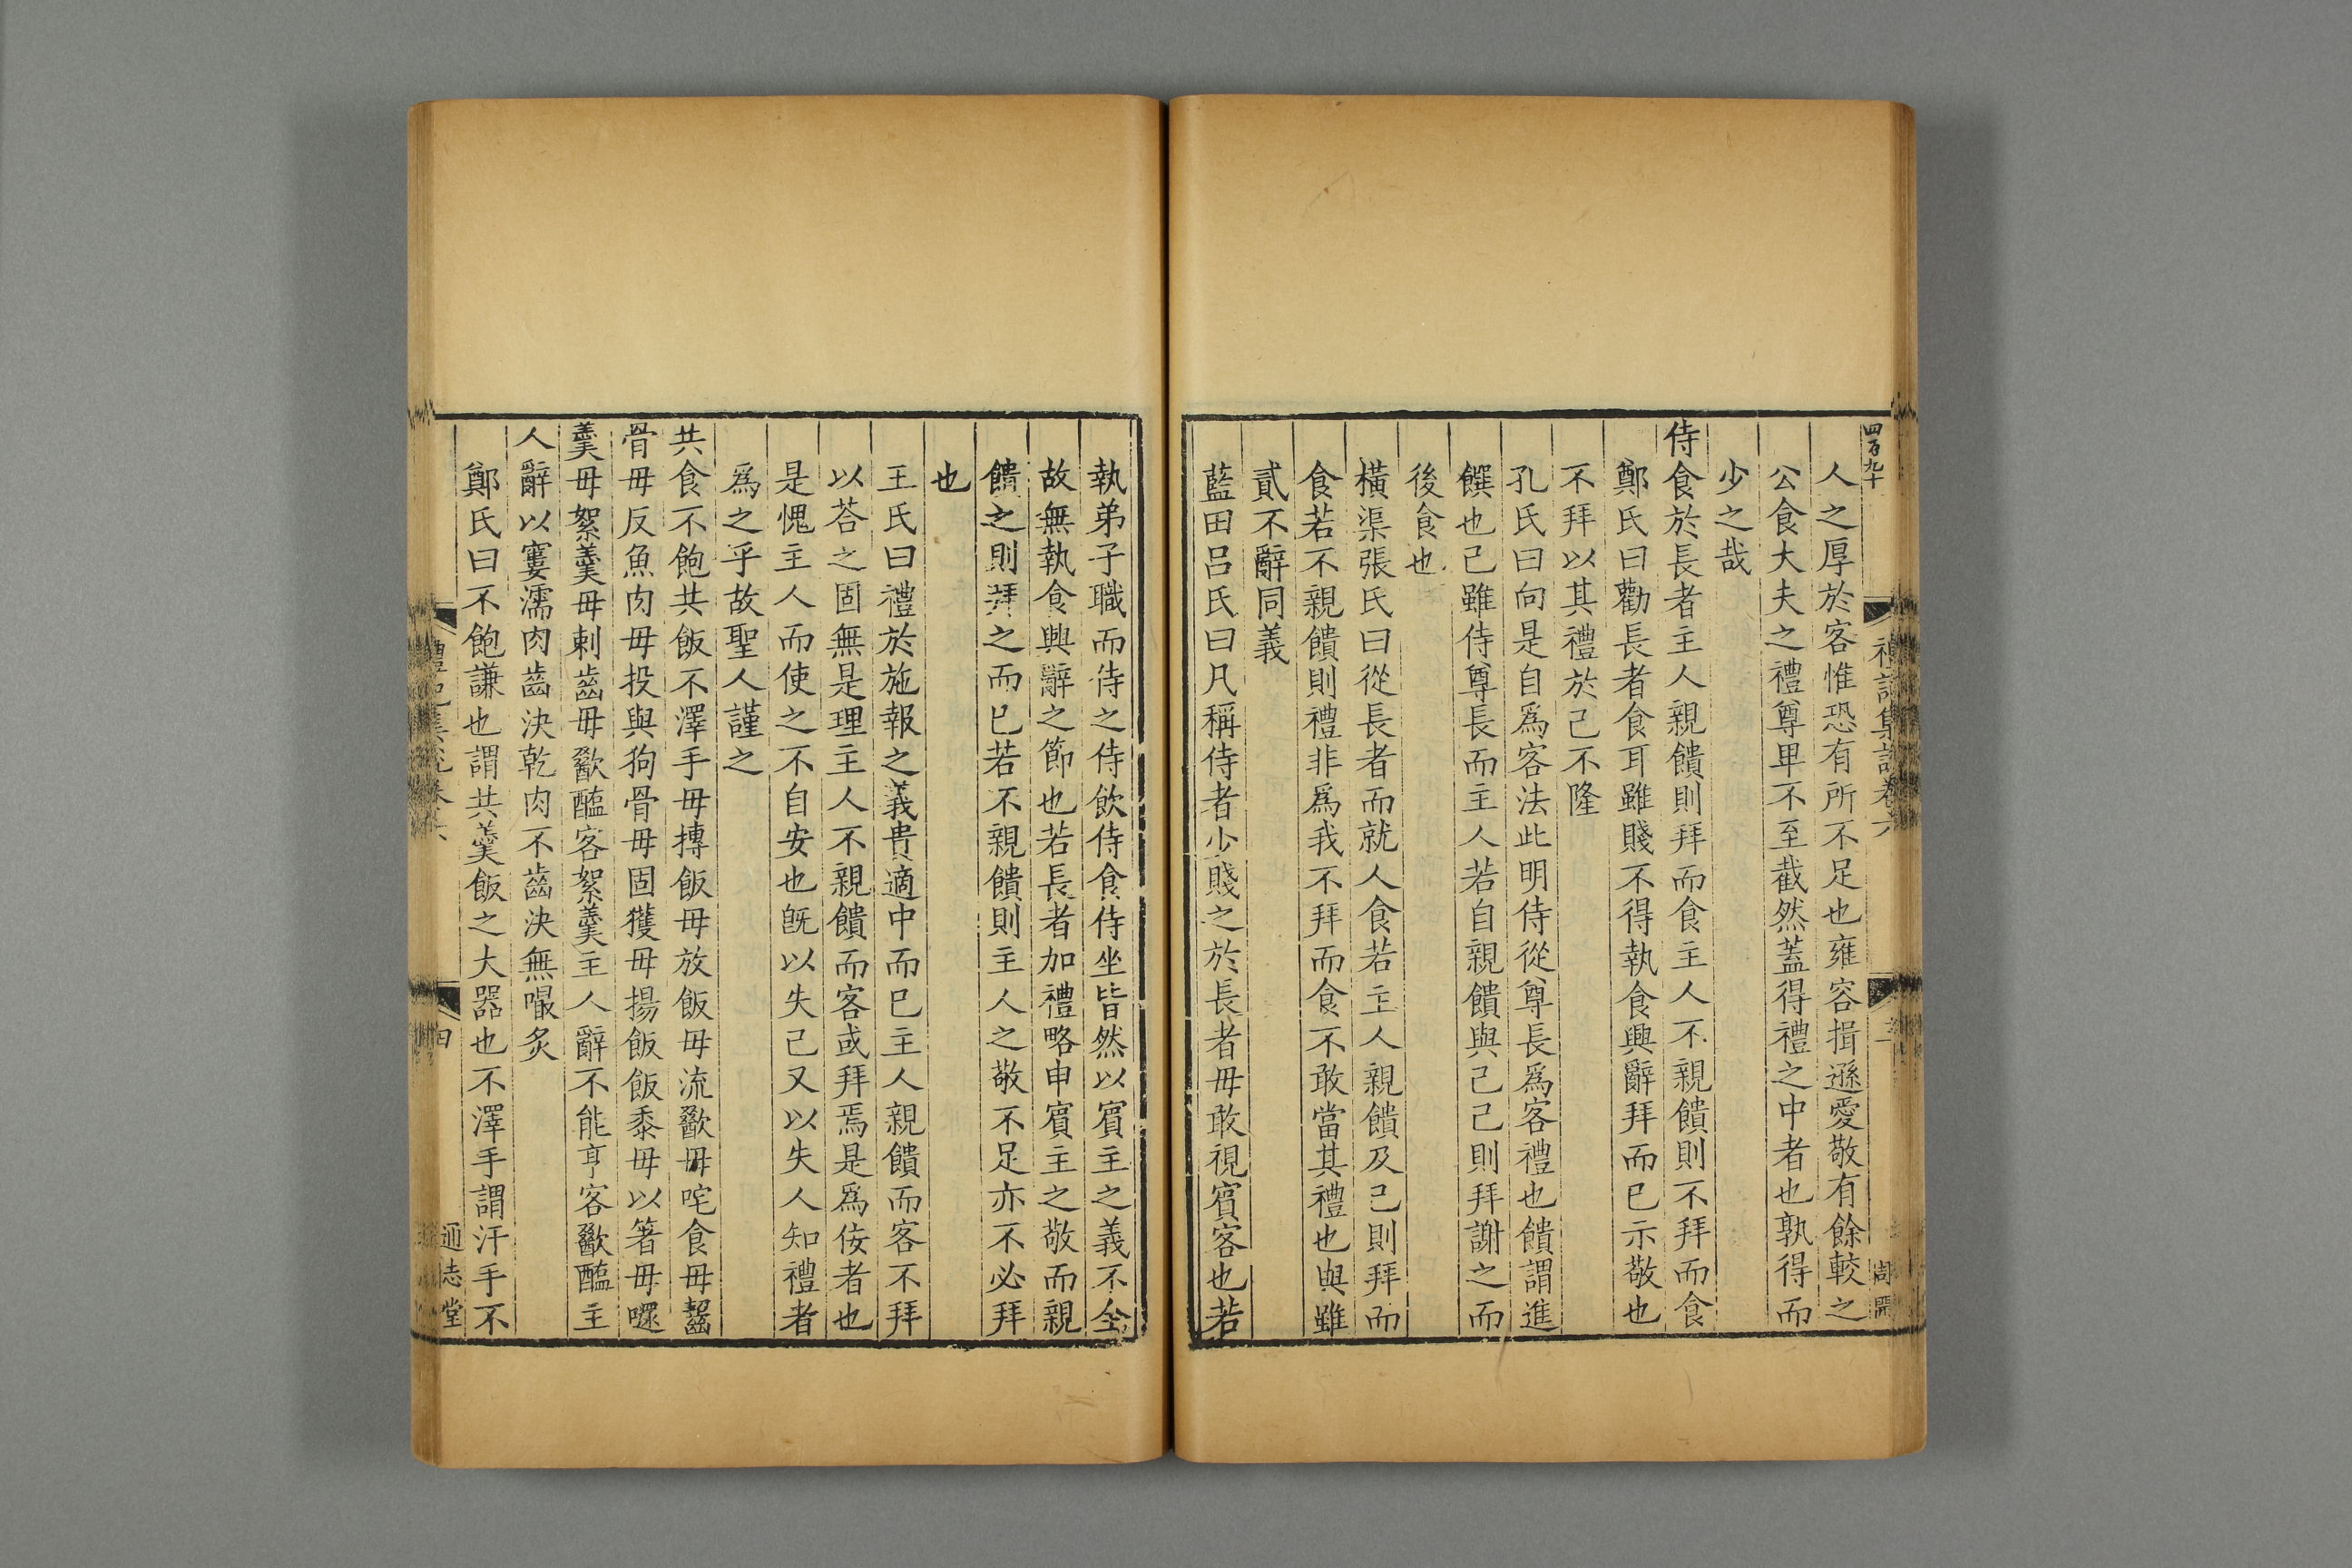 四百九十
禮記集說卷六
人之厚於客惟恐有所不足也雍容揖遜愛敬有餘較之
公食大夫之禮尊卑不至截然蓋得禮之中者也孰得而
少之哉
侍食於長者主人親饋則拜而食主人不親饋則不拜而食
鄭氏曰勸長者食耳雖賤不得執食興辭拜而已示敬也
不拜以其禮於己不隆
孔氏曰向是自爲客法此明侍從尊長爲客禮也饋謂進
饌也己雖侍尊長而主人若自親饋與己己則拜謝之而
後食也
橫渠張氏曰從長者而就人食若主人親饋及己則拜而
食若不親饋則禮非爲我不拜而食不敢當其禮也與雖
貳不辭同義
藍田呂氏曰凡稱侍者少賤之於長者毋敢視賓客也若
執弟子職而侍之侍飲侍食侍坐皆然以賓主之義不全
故無執食興辭之節也若長者加禮略申賓主之敬而親
饋之則拜之而已若不親饋則主人之敬不足亦不必拜
也
王氏曰禮於施報之義貴適中而已主人親饋而客不拜
以荅之固無是理主人不親饋而客或拜焉是爲佞者也
是愧主人而使之不自安也旣以失己又以失人知禮者
爲之乎故聖人謹之
共食不飽共飯不澤手毋摶飯毋放飯毋流歠毋咤食毋齧
骨毋反魚肉毋投與狗骨毋固獲毋揚飯飯黍毋以箸毋嚃
羹毋絮羹毋刺齒毋歠醢客絮羹主人辭不能亨客歠醢主
人辭以窶濡肉齒決乾肉不齒決無嘬炙
鄭氏曰不飽謙也謂共羹飯之大器也不澤手謂汗手不
四
通志堂